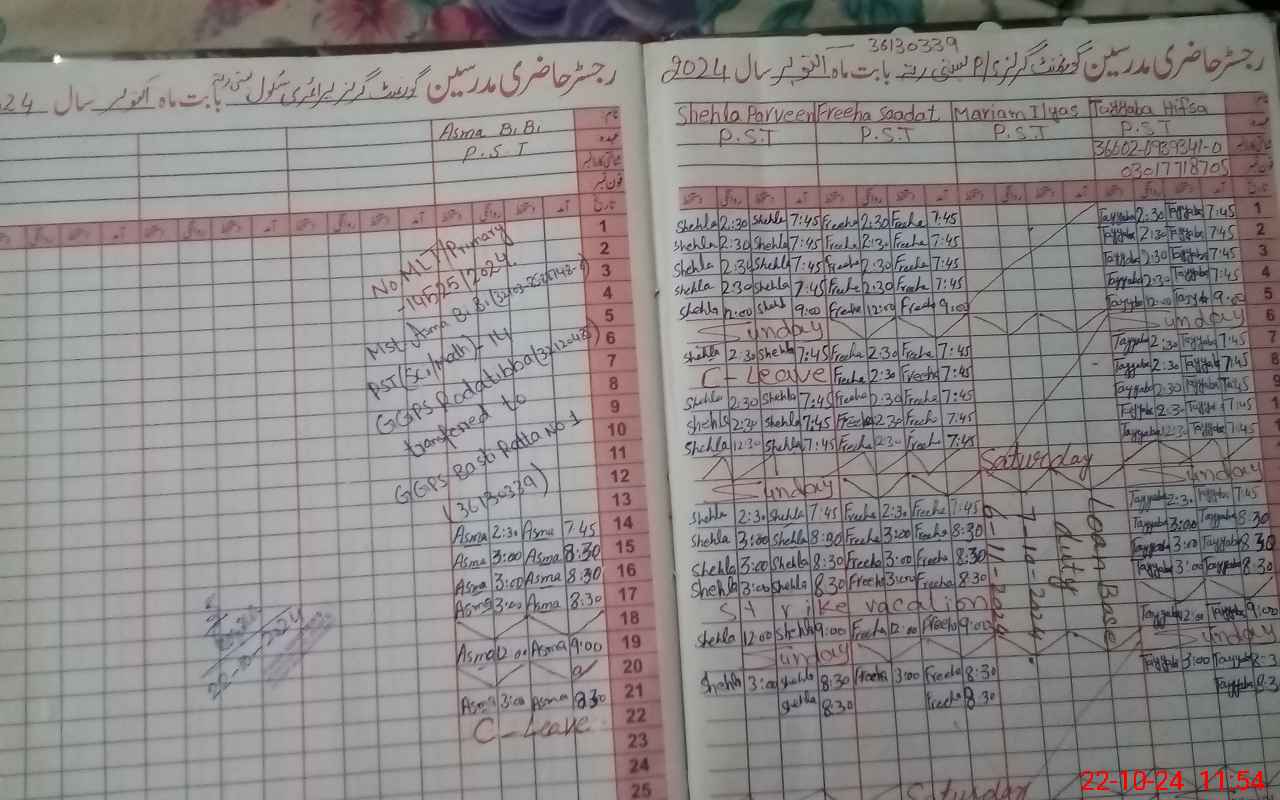 رجسٹر حاضری مدرسین گورنمنٹ گرلز پرائمری سکول بستی رتہ بابت ماہ اکتوبر سال 24
Asma Bi Bi
P.S.T
1
2
3
4
5
6
7
8
9
10
11
12
13
14
15
16
17
18
19
20
21
22
23
24
25
No MLT/Primary
-14525/2024.
Mst. Asma Bi Bi
PST(Sci/Math)-14
GGPS Rodatibba
transferred to
GGPS Basti Ratta No 1
(36130339)
Asma 2:30 Asma 7:45
Asma 3:00 Asma 8:30
Asma 3:00 Asma 8:30
Asma 3:00 Asma 8:30
Asma 12:00 Asma 9:00
Asma 3:00 Asma 8:30
C-Leave
22-10-2024
36130339
رجسٹر حاضری مدرسین گورنمنٹ گرلز P/S بستی رتہ بابت ماہ اکتوبر سال 2024
Shehla Parveen Freeha Saadat Mariam Ilyas Tayyaba Hifsa
P.S.T P.S.T P.S.T P.S.T
36602-0939341-0
03017718705
Shehla 2:30 Shehla 7:45 Freeha 2:30 Freeha 7:45 Tayyaba 2:30 Tayyaba 7:45 1
Shehla 2:30 Shehla 7:45 Freeha 2:30 Freeha 7:45 Tayyaba 2:30 Tayyaba 7:45 2
Shehla 2:30 Shehla 7:45 Freeha 2:30 Freeha 7:45 Tayyaba 2:30 Tayyaba 7:45 3
Shehla 2:30 Shehla 7:45 Freeha 2:30 Freeha 7:45 Tayyaba 2:30 Tayyaba 7:45 4
Shehla 12:00 Shehla 9:00 Freeha 12:00 Freeha 9:00 Tayyaba 12:00 Tayyaba 9:00 5
Sunday Sunday 6
Shehla 2:30 Shehla 7:45 Freeha 2:30 Freeha 7:45 Tayyaba 2:30 Tayyaba 7:45 7
C-Leave Freeha 2:30 Freeha 7:45 Tayyaba 2:30 Tayyaba 7:45 8
Shehla 2:30 Shehla 7:45 Freeha 2:30 Freeha 7:45 Tayyaba 2:30 Tayyaba 7:45
Shehla 2:30 Shehla 7:45 Freeha 2:30 Freeha 7:45 Tayyaba 2:30 Tayyaba 7:45
Shehla 12:30 Shehla 7:45 Freeha 12:30 Freeha 7:45 Tayyaba 12:30 Tayyaba 7:45
Saturday
Sunday Sunday
Shehla 2:30 Shehla 7:45 Freeha 2:30 Freeha 7:45 Tayyaba 2:30 Tayyaba 7:45
Shehla 3:00 Shehla 8:30 Freeha 3:00 Freeha 8:30 Tayyaba 3:00 Tayyaba 8:30
Shehla 3:00 Shehla 8:30 Freeha 3:00 Freeha 8:30 Tayyaba 3:00 Tayyaba 8:30
Shehla 3:00 Shehla 8:30 Freeha 3:00 Freeha 8:30 Tayyaba 3:00 Tayyaba 8:30
Strike vacation
Shehla 12:00 Shehla 9:00 Freeha 12:00 Freeha 9:00 Tayyaba 12:00 Tayyaba 9:00
Sunday Sunday
Shehla 3:00 Shehla 8:30 Freeha 3:00 Freeha 8:30 Tayyaba 3:00 Tayyaba 8:3
Shehla 8:30 Freeha 8:30 Tayyaba 8:3
Loan Base
duty
7-10-2024
6-11-2024
Saturday
22-10-24 11:54